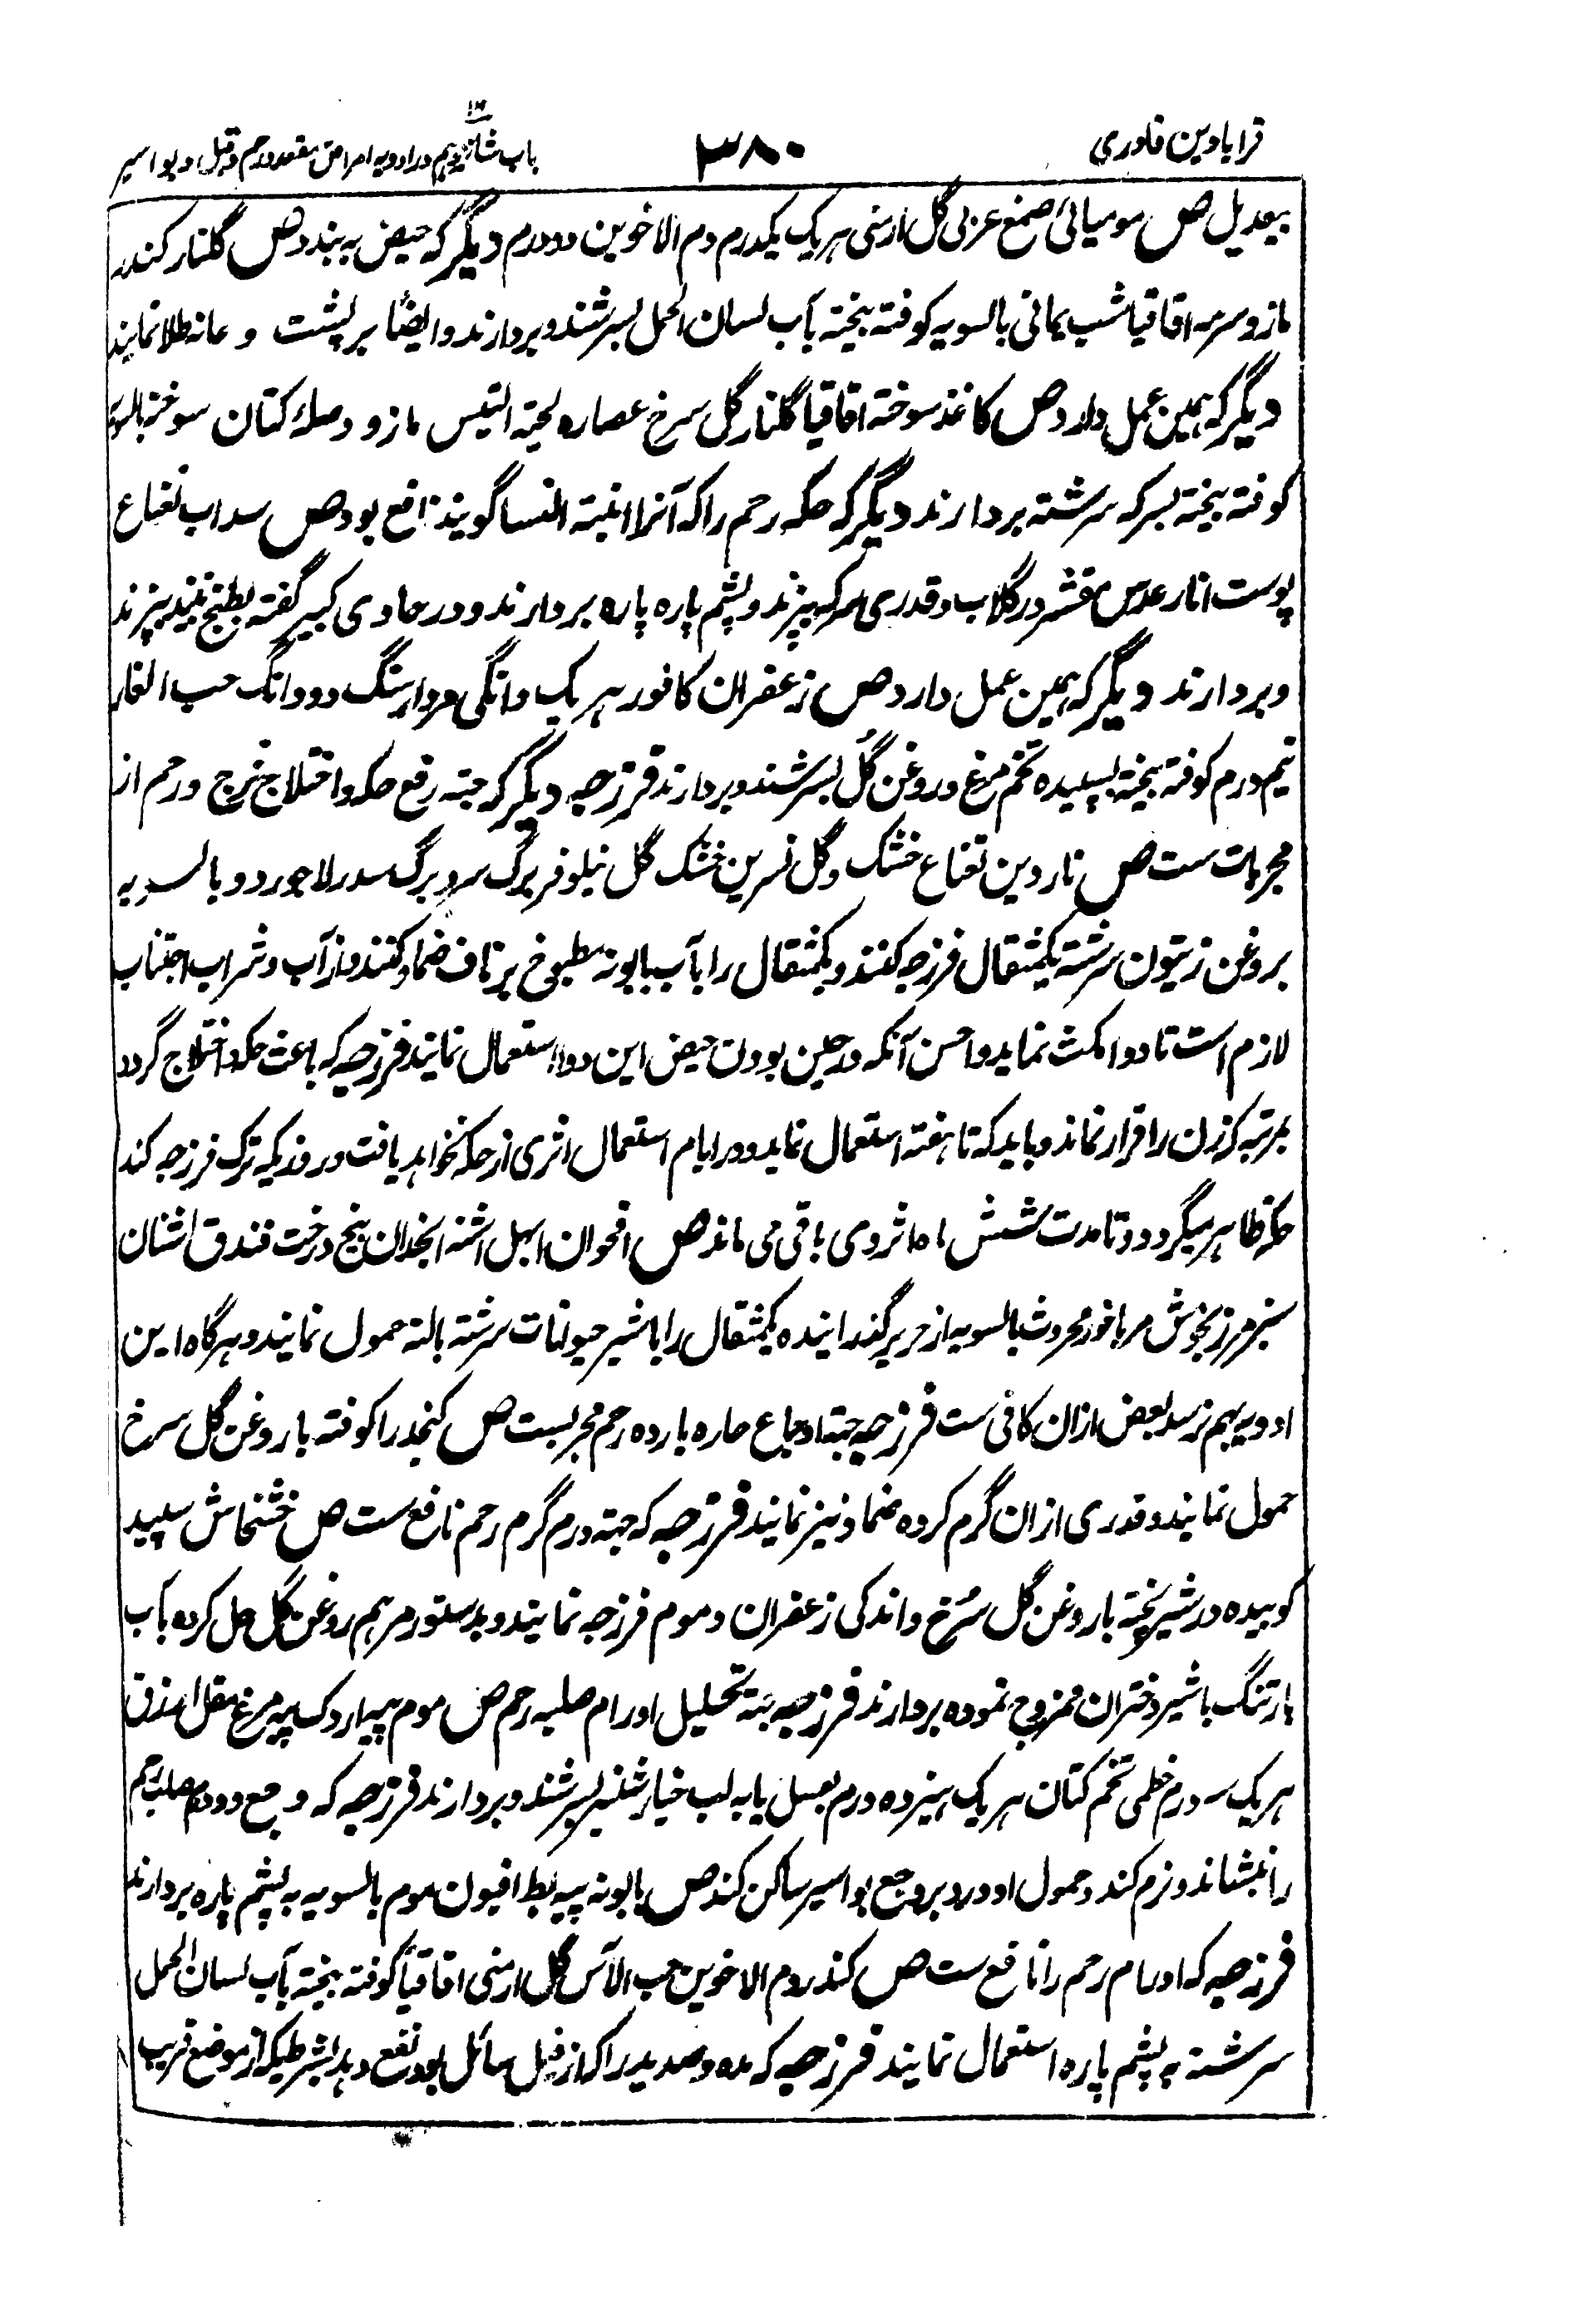 قرابادین قادری
۳۸۰
باب شانزدهم در ادویه امراض مقعد و رحم و قبل و بواسیر
۱۶
بیعدیل ص مومیائی صمغ عربی گل ارمنی هر یک یکدرم دم الاخوین دو درم دیگر که حیض به بندد ص گلنار کندر
مازو سرمه اقاقیا شب یمانی بالسویه کوفته بیخته بآب لسان الحمل بسرشند و بردارند و ایضًا بر پشت و عانه طلا نمایند
دیگر که همین عمل دارد ص کاغذ سوخته اقاقیا گلنار گل سرخ عصاره لحیة التیس مازو و صلۀ کتان سوخته بالسویه
کوفته بیخته بسرکه سرشته بردارند دیگر که حکه رحم را که آنرا ابنة النسا گویند نافع بود ص سداب نعناع
پوست انار عدس مقشر در گلاب و قدری سرکه بپزند و پشم پاره پاره بردارند و در حاوی کبیر گفته بطبخ نبیذ بپزند
و بردارند دیگر که همین عمل دارد ص زعفران کافور هر یک دانگی مردارسنگ دو دانگ حب الغار
نیم درم کوفته بیخته بسپیده تخم مرغ و روغن گُل بسرشند و بردارند فرزجه دیگر که جهته رفع حکه و اختلاج فرج و رحم از
مجربات ست ص ناردین نعناع خشک و گل نسرین خشک گل نیلوفر برگ سرو برگ سدر لاجورد و بالسویه
بروغن زیتون سرشته یکمثقال فرزجه کنند و یکمثقال را بآب بابونه مطبوخ بر ناف ضماد کنند و از آب و شراب اجتناب
لازم است تا دوا مکث نماید و احسن آنکه در حین بودن حیض این دوا استعمال نمایند فرزجه که باعث حکه و اختلاج گردد
بمرتبه که زن را قرار نماند و باید که تا هفته استعمال نماید و در ایام استعمال اثری از حکه نخواهد یافت و روزیکه ترک فرزجه کند
حکه ظاهر میگردد و تا مدت شش ماه اثر وی باقی می ماند ص اقحوان ابهل اشنه انجدان بیخ درخت فندق اشنان
سبز مرزنجوش مرماخوز محروث بالسویه از حریر گذرانیده یکمثقال را با شیر حیوانات سرشته بالته حمول نمایند و هرگاه این
ادویه بهم نرسد بعض ازان کافی ست فرزجه جهته اوجاع حاره بارده رحم مجربست ص کنجد را کوفته با روغن گل سرخ
حمول نمایند و قدری ازان گرم کرده ضماد نیز نمایند فرزجه که جهته ورم گرم رحم نافع ست ص خشخاش سپید
کوبیده در شیر پخته با روغن گل سُرخ و اندکی زعفران و موم فرزجه نمایند و بدستور مرهم روغن گل حل کرده بآب
بارتنگ با شیر دختران ممزوج نموده بردارند فرزجه جهته تحلیل اورام صلبه رحم ص موم پیه اردک پیه مرغ مقل ازرق
هر یک سه درم خطمی تخم کتان هر یک هیزده درم بعسل یا به لب خیارشنبر بسرشند و بردارند فرزجه که وجع و ورم صلب رحم
را بنشاند و نرم کند و حمول او درد بر وجع بواسیر ساکن کند ص بابونه پیه بط افیون موم بالسویه به پشم پاره بردارند
فرزجه که اورام رحم را نافع ست ص کندر دم الاخوین حب الآس گل ارمنی اقاقیا کوفته بیخته بآب لسان الحمل
سرشته به پشم پاره استعمال نمایند فرزجه که مده و صدید را که از قبل سائل بود نفع دهد بشرطیکه از موضع قریب